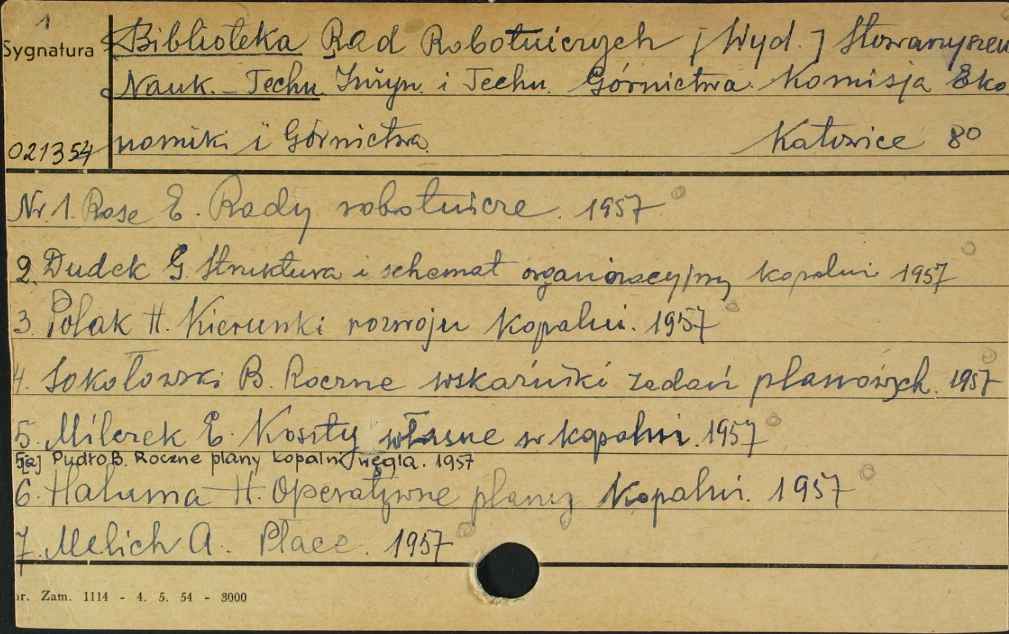 1
Sygnatura Biblioteka Rad Robotniczych [Wyd.] Stowarzyszen
Nauk. - Techn. Inżyn. i Techn. Górnictwa. Komisja Eko
021354 nomiki i Górnictwa. Katowice 8°
Nr. 1. Rose E. Rady robotnicze. 1957
2. Dudek G Struktura i schemat organizacyjny kopalni 1957
3. Polak H. Kierunki rozwoju kopalni. 1957
4. Sokołowski B. Roczne wskaźniki zadań planowych. 1957
5. Milczek E. Koszty własne w kopalni. 1957
5[a] Pudło B. Roczne plany kopalń węgla. 1957
6. Haluma H. Operatywne plany kopalni. 1957
7. Melich A. Place. 1957
nr. Zam. 1114 - 4. 5. 54 - 3000